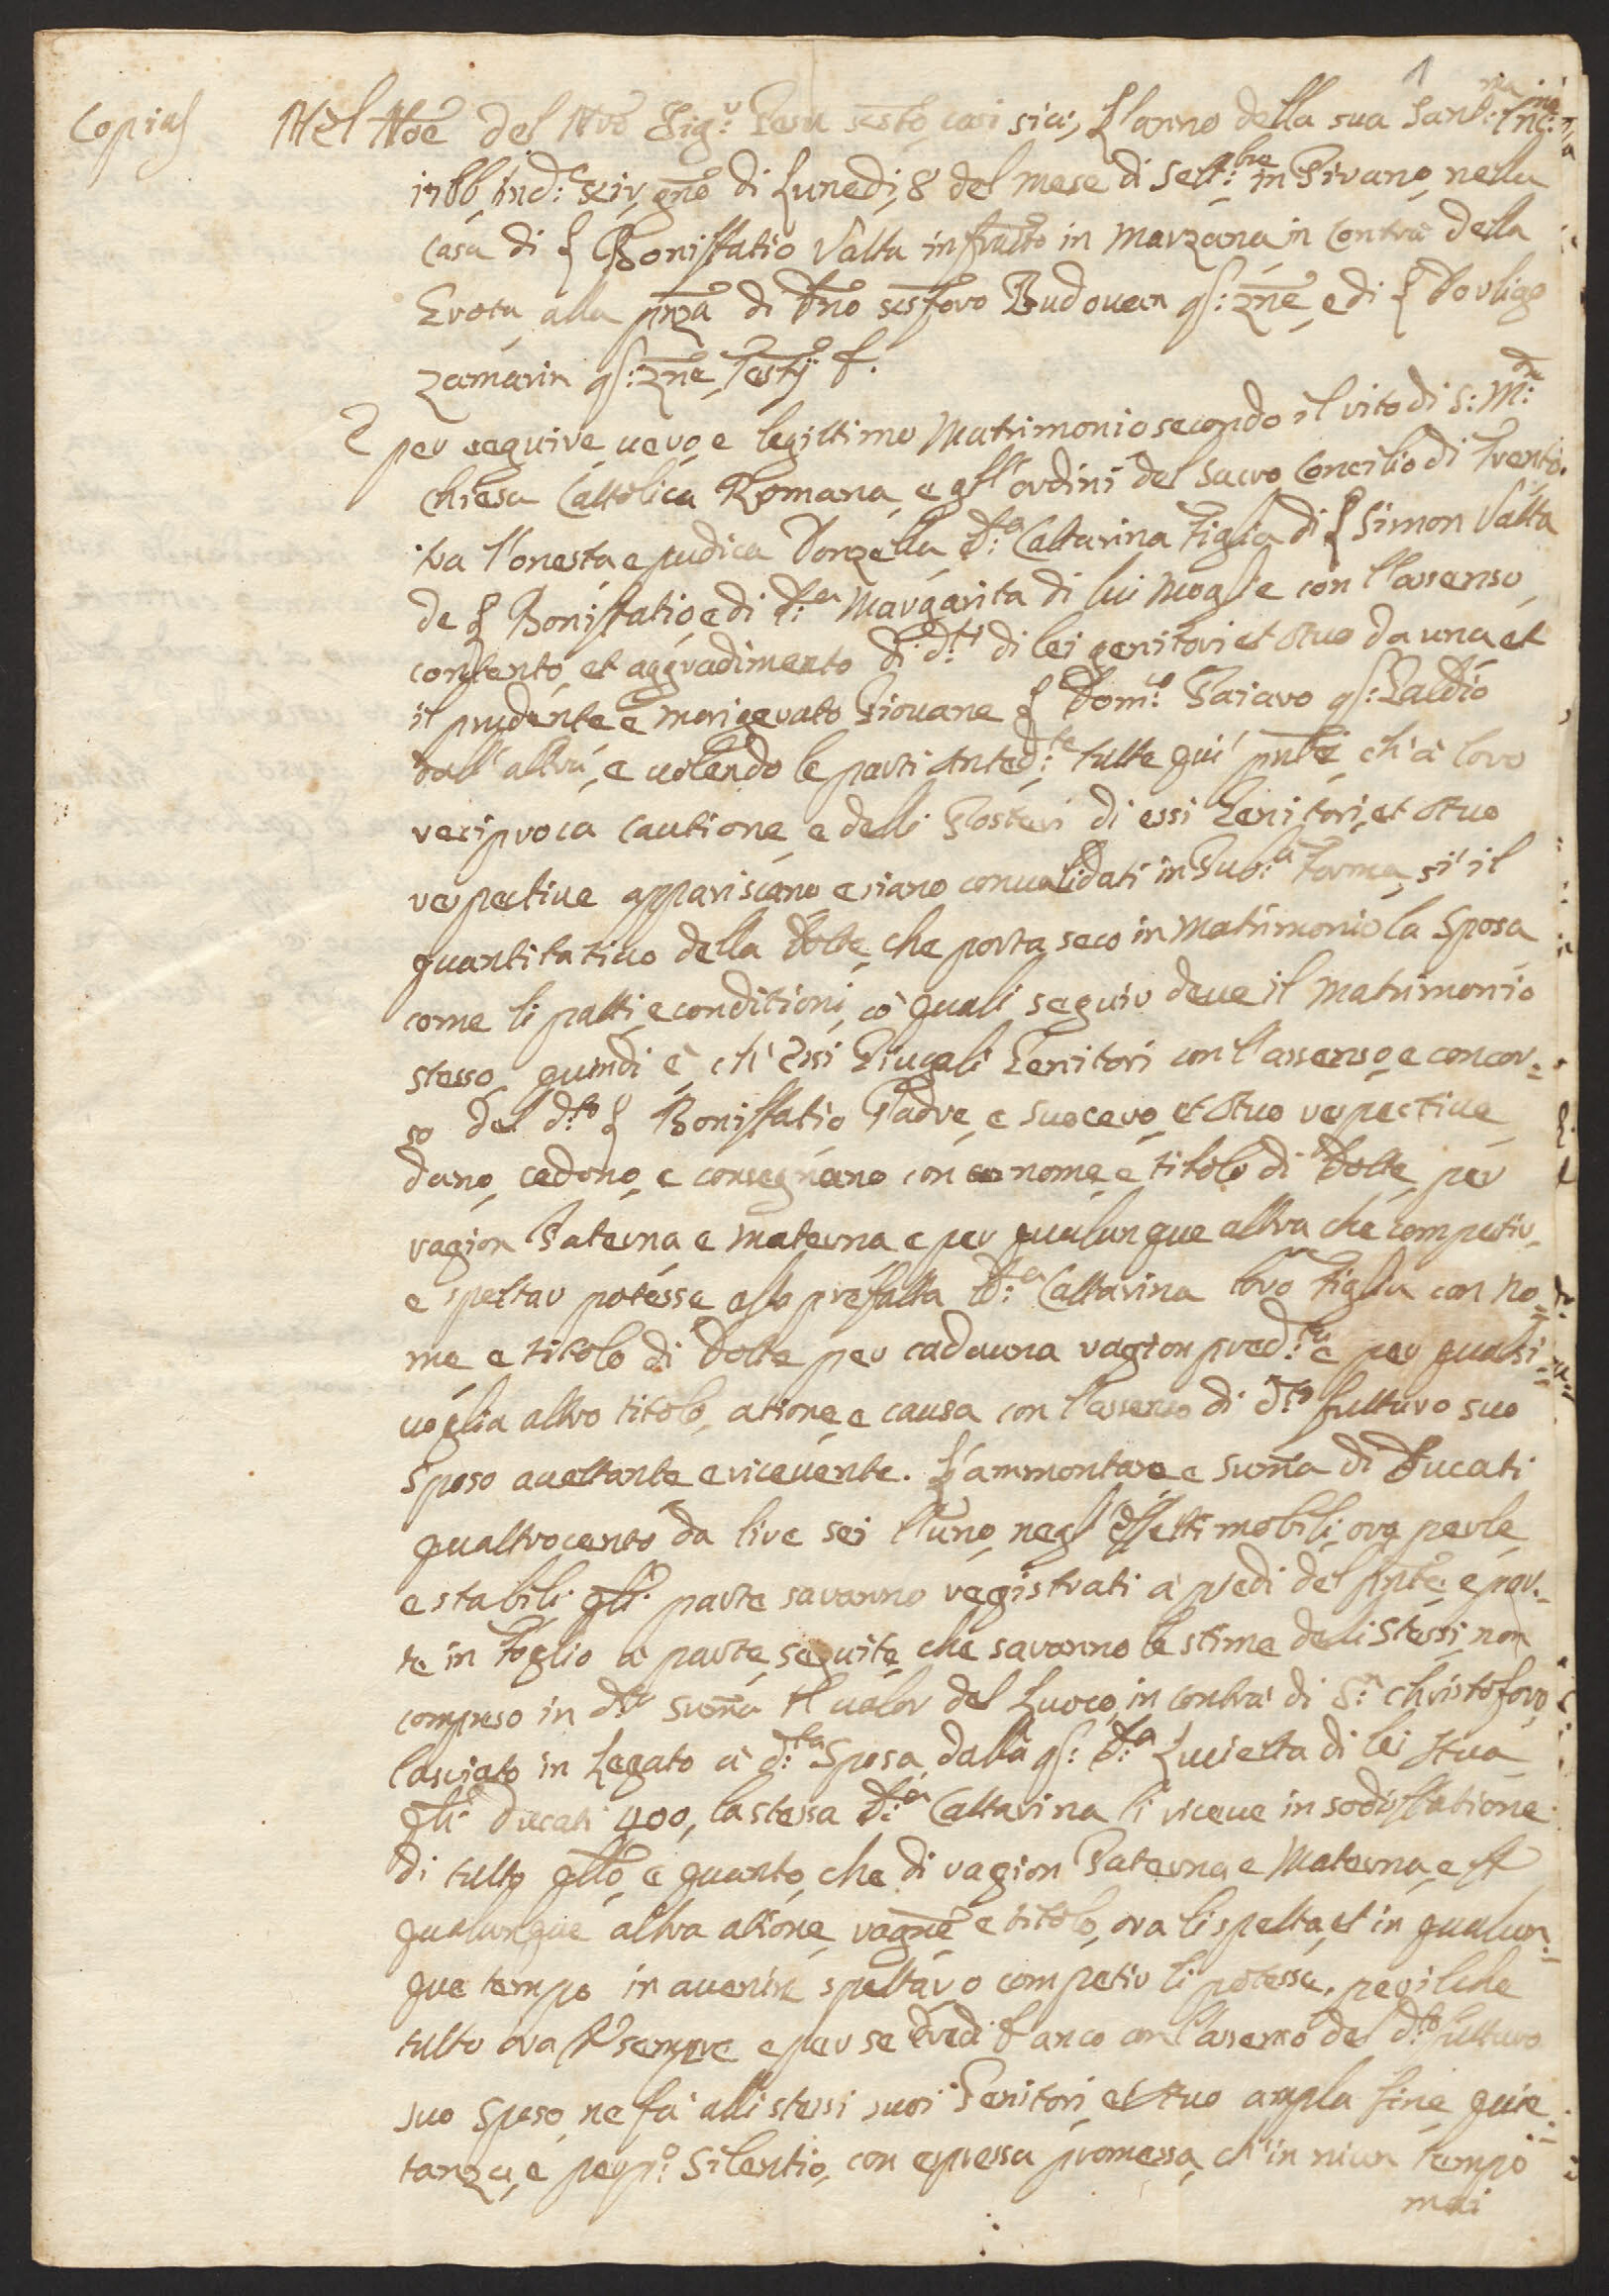 1
Copia
Nel Noe del Nro Sig:r Gesu xsto, cosi sia;, l'anno della sua Sant:ma Inc:ne
1766, ind: xiv, gno di Lunedi, 8 del mese di Sett:bre in Pirano, nella
casa di Boniffatio Valta infratto in Marzana in Contrà della
Erota, alla pnza di Dno xstoforo Budovean qß: Zne, e di Dorligo
Zamarin qß: Zne, Testij
E per seguire, uero, e legittimo Matrimonio secondo il rito di S: M:dre
Chiesa Cattolica Romana, e gl' ordini del Sacro Concilio di Trento.
tra l'onesta, e pudica Donzella D:a Cattarina Figlia di Simon Valta
de Boniffatio, e di D:a Margarita di lui Moglie con l'assenso,
contento, et aggradimento di d:ti di lei genitori et Auo da una et
il prudente e morigerato Giouane Dom:co Gaiaro qß: Baldio
dall' altra, e uolendo le parti Anted:te tutte quì pnti, ch'à loro
reciproca cautione, e delli Posteri di essi Genitori, et Auo
respectiue appariscano e siano conualidati in Pub:a Forma, sì il
quantitatiuo della Dotte, che porta seco in Matrimonio la Sposa
come li patti, e conditioni, co' quali seguir deue il Matrimonio
stesso, quindi è, ch' Essi Giugali Genitori con l'assenso, e concor=
so del d:to Boniffatio Padre, e suocero, et Auo respectiue
dano, cedono, e consegnano con nome, e titolo di Dotte, per
ragion Paterna e materna e per qualunque altra che competir,
e spettar potesse alla prefatta D:a Cattarina loro Figlia con no=
me e titolo di Dotte per cadauna ragion pred:ta e per qualsi=
uoglia altro titolo, atione, e causa con l'assenso di d:to futturo suo
Sposo acettante e riceuente. L'ammontare e suma di Ducati
quattrocento da lire sei l'uno, negl' effetti mobili, oro, perle,
e stabili, qli parte saranno registrati à piedi del pnte, e par=
te in Foglio à parte, seguite, che saranno le stime delli stessi, non
compreso in d:ta Suma il ualor del Luoco in contrà di S:n Christoforo,
lasciato in Legato à d:ta Sposa dalla qß: D:a Lucietta di lei Aua
qli Ducati 400, la stessa D:a Cattarina li riceue in sodisfatione
di tutto qllo, e quanto, che di ragion Paterna e Materna, e
qualunque altra atione, ragne e titolo, ora li spetta, et in qualun=
que tempo in auenire spettar, o competir li potesse, pegilche
tutto ora sempre e per se Eredi anco con l'assenso del d:to futturo
suo Sposo, ne fà alli stessi suoi Genitori, et Auo ampla fine quie=
tanza, e perp:o Silentio, con espressa promessa, ch'in niun tempo
mai